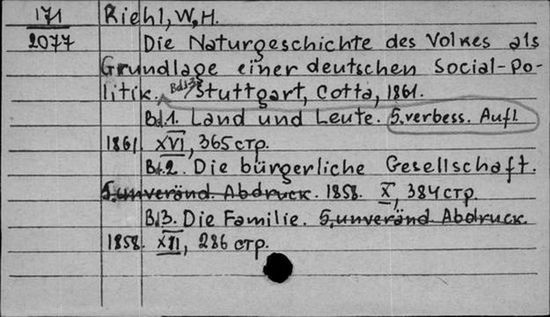 171 Riehl, W. H.
2077 Die Naturgeschichte des Volkes als
Grundlage einer deutschen Social-Po-
litik. Bd.1-3. Stuttgart, Cotta, 1861.
Bd.1. Land und Leute. 5.verbess. Aufl.
1861. XVI, 365 стр.
Bd.2. Die bürgerliche Gesellschaft.
5.unveränd. Abdruck. 1858. X, 384 стр.
Bd.3. Die Familie. 5.unveränd Abdruck.
1858. XII, 286 стр.